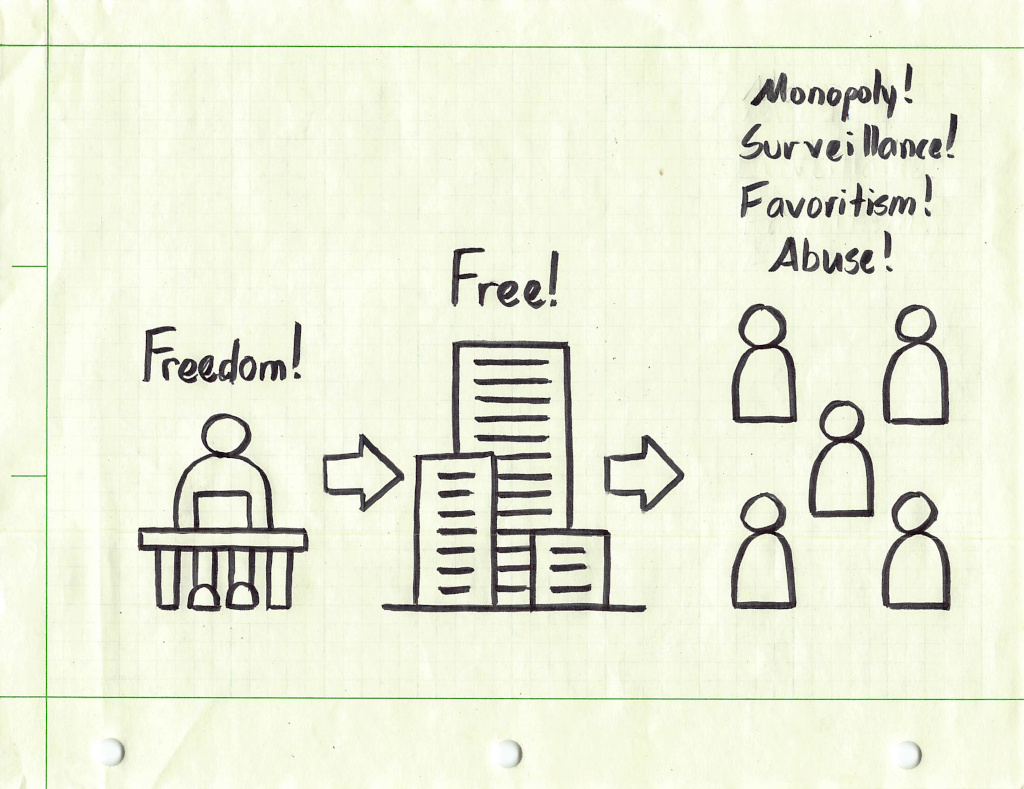 Freedom!
Free!
Monopoly!
Surveillance!
Favoritism!
Abuse!